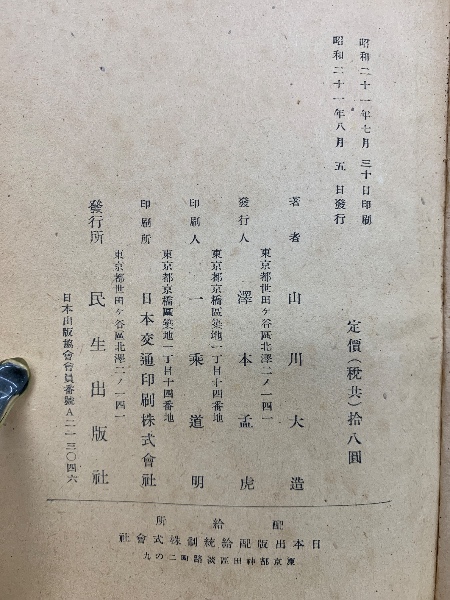 昭和二十一年七月三十日印刷
昭和二十一年八月五日發行
定價(稅共)拾八圓
著者 山川大造
東京都世田ケ谷區北澤二ノ一四一
發行人 澤本孟虎
東京都京橋區築地一丁目十四番地
印刷人 一乘道明
東京都京橋區築地一丁目十四番地
印刷所 日本交通印刷株式會社
東京都世田ケ谷區北澤二ノ一四一
發行所 民生出版社
日本出版協會會員番號A二一三〇四六
配給所
日本出版配給統制株式會社
東京都神田區淡路町二の九